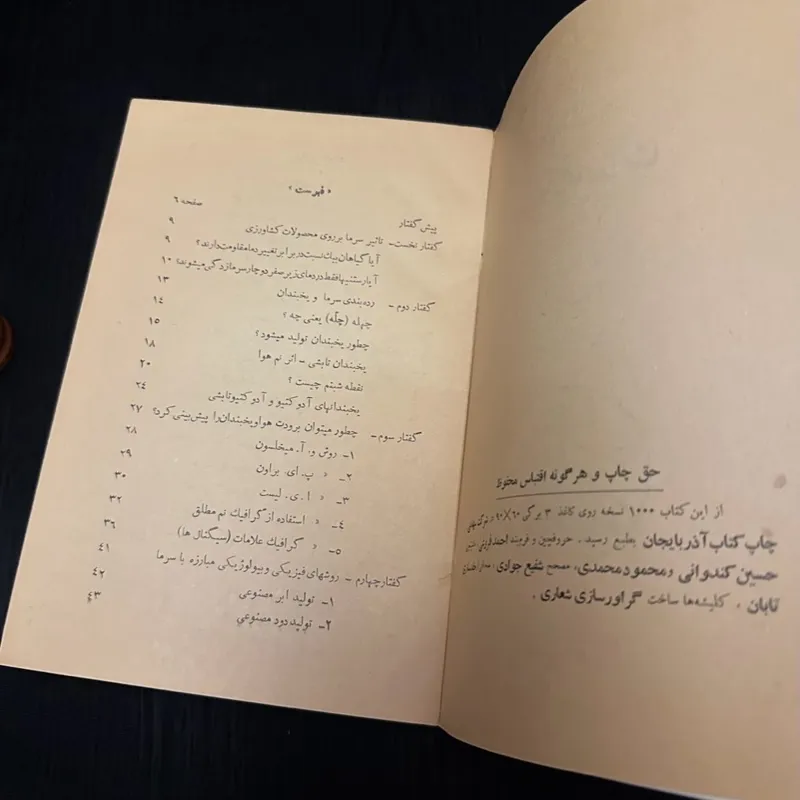 حق چاپ و هرگونه اقتباس محفوظ
از این کتاب ۱۰۰۰ نسخه روی کاغذ ۳ برگی ۶۰×۹۰ در
چاپ کتاب آذربایجان بطبع رسید. حروفچین و فرمبند احمد
حسین کندوانی و محمود محمدی، مصحح شفیع جوادی،
تابان، کلیشه‌ها ساخت گراورسازی شعاری.
« فهرست »
پیش گفتار صفحه ۶
گفتار نخست- تاثیر سرما بر روی محصولات کشاورزی ۹
آیا گیاهان بیك نسبت در برابر تغییر دما مقاومت دارند؟ ۹
آیا رستنیها فقط در دمای زیر صفر دوچار سرمازدگی میشوند؟ ۱۰
گفتار دوم - رده‌بندی سرما و یخبندان ۱۳
چهله (چلّه) یعنی چه؟ ۱۴
چطور یخبندان تولید میشود؟ ۱۵
یخبندان تابشی - اثر نم هوا ۱۸
نقطه شبنم چیست؟ ۲۰
یخبندانهای آدوکتیو و آدوکتیوتابشی ۲۴
گفتار سوم - چطور میتوان برودت هوا و یخبندان را پیش‌بینی کرد؟ ۲۷
۱- روش و. آ. میخلسون ۲۸
۲- « پ. ای. براون ۲۹
۳- « ا. ی. لیست ۳۰
۴- « استفاده از گرافیك نم مطلق ۳۲
۵- « گرافیك علامات (سیگنال ها) ۳۶
گفتار چهارم - روشهای فیزیکی و بیولوژیکی مبارزه با سرما ۴۱
۱- تولید ابر مصنوعی ۴۲
۲- تولید دود مصنوعی ۴۳